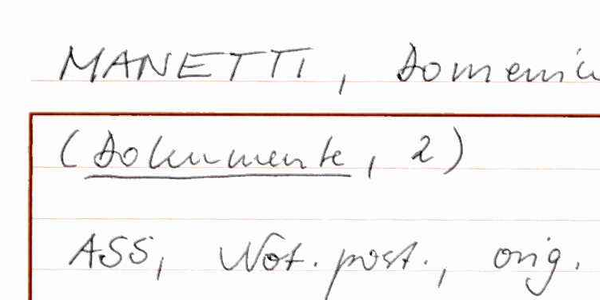 MANETTI, Domenic
(Dokumente, 2)
ASS, Not. post., orig.